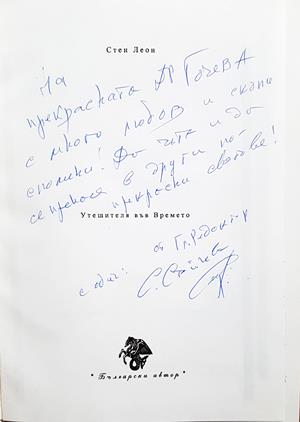 Стен Леон
На
прекрасната Д-р Гочева
с много любов и скъпи
спомени! Да чита и да
се пренася в други по-
прекрасни светове!
Утешителя във Времето
от Гл. Редактор
с обич:
"Български автор"